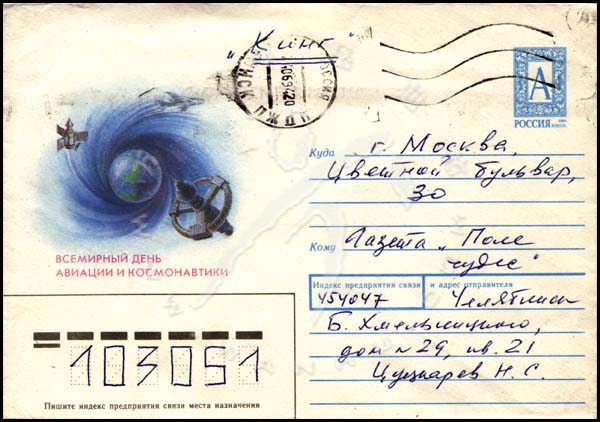 "Кинг"
А
РОССИЯ
Куда г. Москва,
Цветной бульвар,
30
Кому Газета "Поле
чудес"
ВСЕМИРНЫЙ ДЕНЬ
АВИАЦИИ И КОСМОНАВТИКИ
Индекс предприятия связи и адрес отправителя
454047 Челябинск
Б. Хмельницкого,
дом № 29, кв. 21
Н. С.
103051
Пишите индекс предприятия связи места назначения